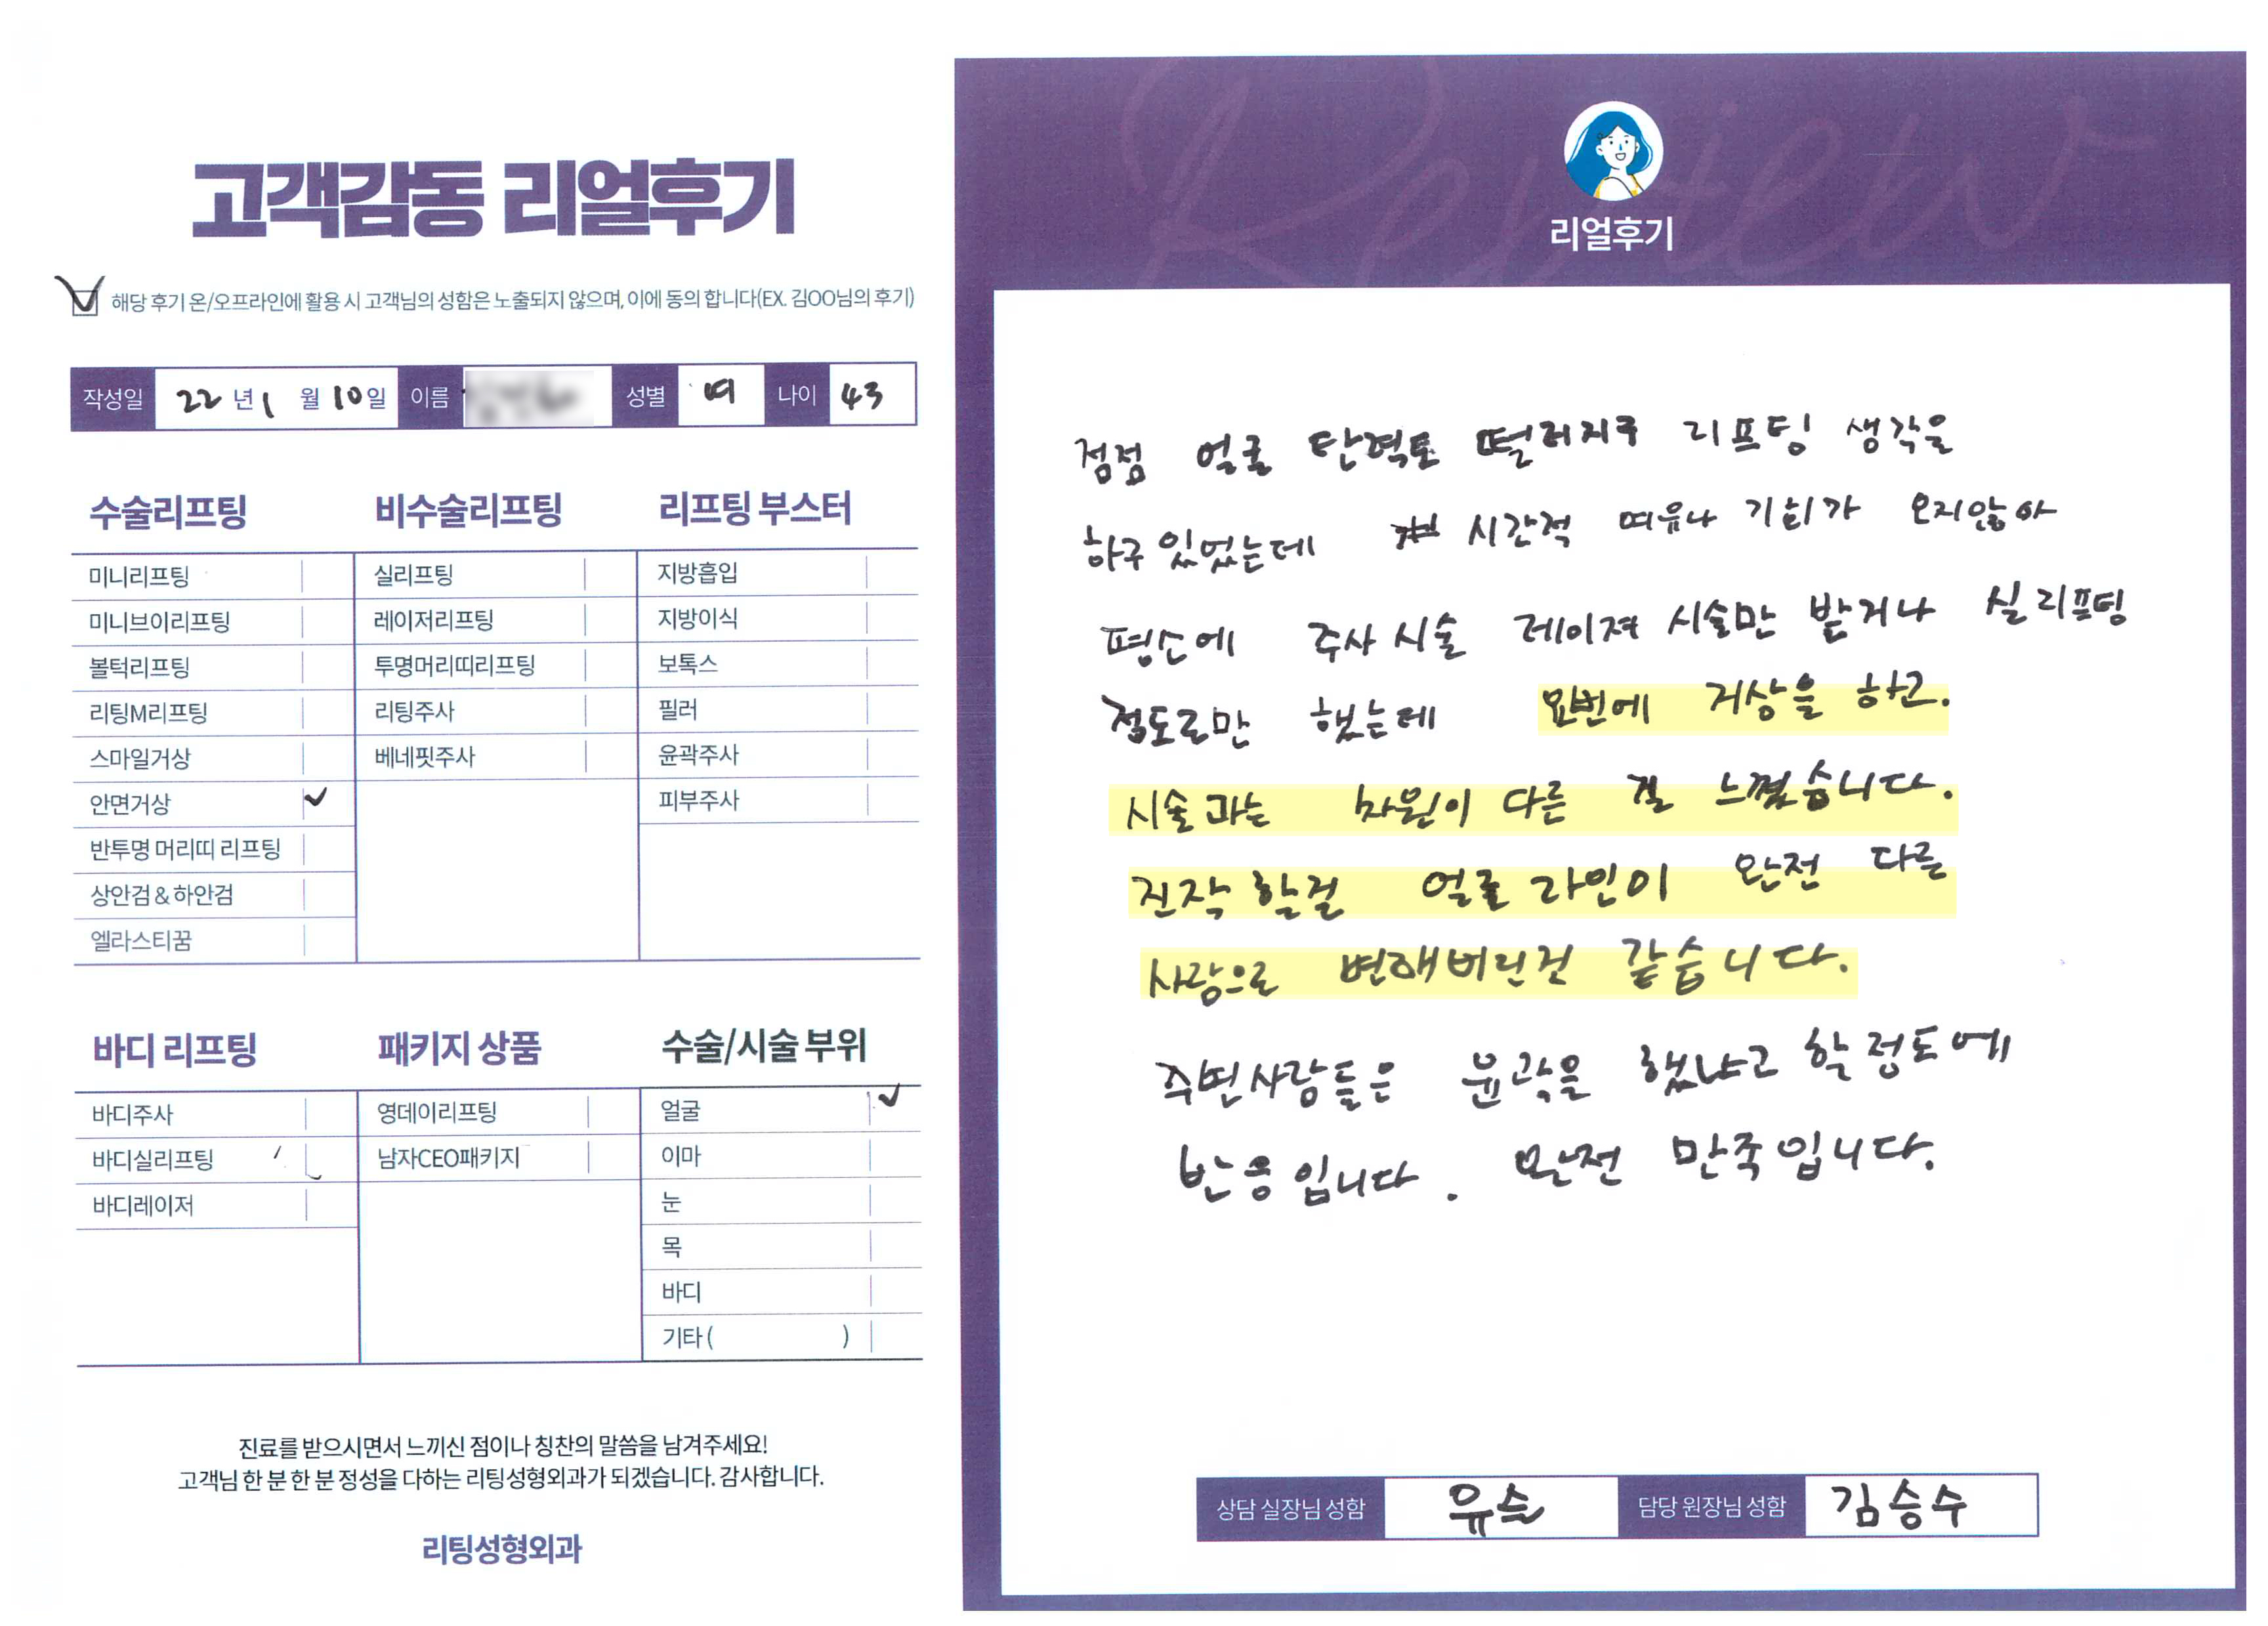 고객감동 리얼후기
해당 후기 온/오프라인에 활용 시 고객님의 성함은 노출되지 않으며, 이에 동의 합니다(EX. 김OO님의 후기)
작성일 22 년 1 월 10 일 이름 성별 여 나이 43
수술리프팅
미니리프팅
미니브이리프팅
볼턱리프팅
리팅M리프팅
스마일거상
안면거상
반투명 머리띠 리프팅
상안검 & 하안검
엘라스티꿈
비수술리프팅
실리프팅
레이저리프팅
투명머리띠리프팅
리팅주사
베네핏주사
리프팅 부스터
지방흡입
지방이식
보톡스
필러
윤곽주사
피부주사
바디 리프팅
바디주사
바디실리프팅
바디레이저
패키지 상품
영데이리프팅
남자CEO패키지
수술/시술 부위
얼굴
이마
눈
목
바디
기타 ( )
진료를 받으시면서 느끼신 점이나 칭찬의 말씀을 남겨주세요!
고객님 한 분 한 분 정성을 다하는 리팅성형외과가 되겠습니다. 감사합니다.
리팅성형외과
Review
리얼후기
점점 얼굴 탄력도 떨러지구 리프팅 생각을
하구 있었는데 시간적 여유나 기회가 오지않아
평소에 주사 시술 레이져 시술만 받거나 실 리프팅
정도로만 했는데 요번에 거상을 하고.
시술과는 차원이 다른 걸 느꼈습니다.
진작 할걸 얼굴 라인이 완전 다른
사람으로 변해버린것 같습니다.
주변사람들은 윤곽을 했냐고 할 정도에
반응입니다. 완전 만족입니다.
상담 실장님 성함 유슬 담당 원장님 성함 김승수